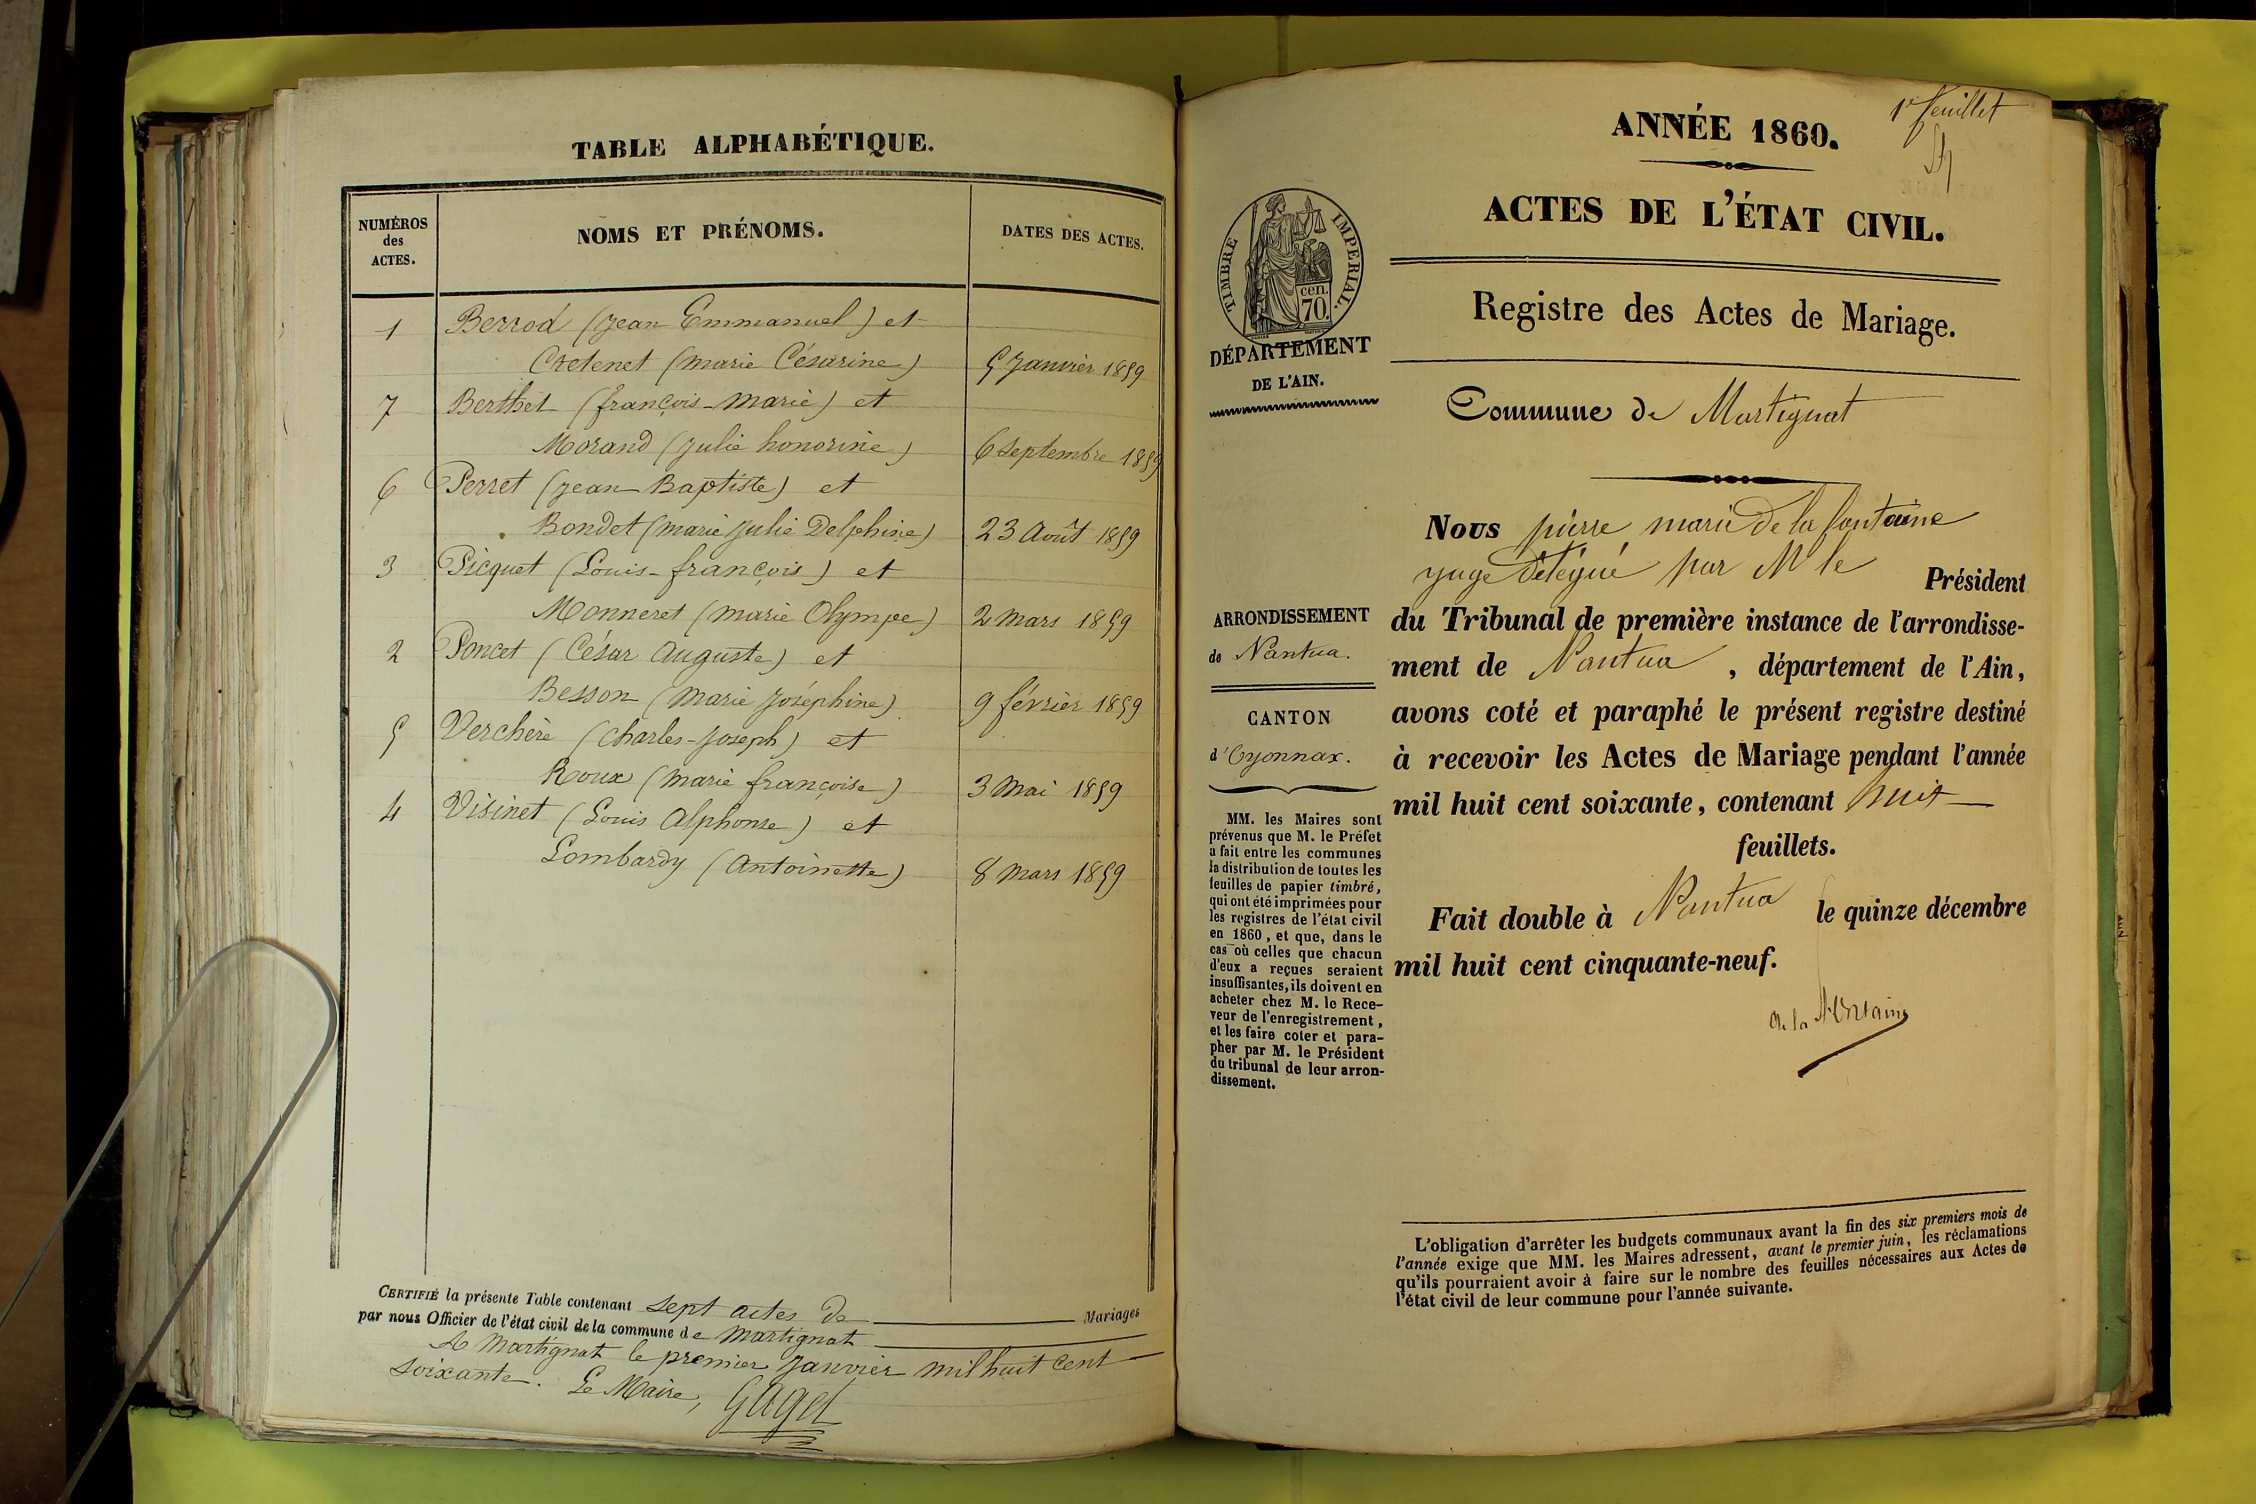 TABLE ALPHABÉTIQUE.
NUMÉROS
des
ACTES.
NOMS ET PRÉNOMS.
DATES DES ACTES.
1 Berrod (Jean Emmanuel) et
Cretenet (marie Césarine) 5 Janvier 1859
7 Berthet (françois-Marie) et
Morand (Julie honorine) 6 Septembre 1859
6 Perret (Jean Baptiste) et
Bondet (marie Julie Delphine) 23 Août 1859
3 Picquet (Louis-françois) et
Monneret (marie Olympe) 2 Mars 1859
2 Poncet (César Auguste) et
Besson (Marie Joséphine) 9 février 1859
5 Verchère (Charles-Joseph) et
Roux (Marie françoise) 3 Mai 1859
4 Visinet (Louis Alphonse) et
Lombardy (Antoinette) 8 Mars 1859
CERTIFIÉ la présente Table contenant sept actes de Mariages
par nous Officier de l'état civil de la commune de Martignat
A Martignat le premier Janvier mil huit cent
soixante. Le Maire, Gagel
1er feuillet
ANNÉE 1860.
ACTES DE L'ÉTAT CIVIL.
TIMBRE IMPERIAL.
cen.
70.
DÉPARTEMENT
DE L'AIN.
Registre des Actes de Mariage.
Commune de Martignat
Nous pierre marie de la fontaine
juge délégué par Mr le Président
du Tribunal de première instance de l'arrondisse-
ment de Nantua, département de l'Ain,
avons coté et paraphé le présent registre destiné
à recevoir les Actes de Mariage pendant l'année
mil huit cent soixante, contenant huit
feuillets.
Fait double à Nantua le quinze décembre
mil huit cent cinquante-neuf.
de la Fontaine
ARRONDISSEMENT
de Nantua.
CANTON
d'Oyonnax.
MM. les Maires sont
prévenus que M. le Préfet
a fait entre les communes
la distribution de toutes les
feuilles de papier timbré,
qui ont été imprimées pour
les registres de l'état civil
en 1860, et que, dans le
cas où celles que chacun
d'eux a reçues seraient
insuffisantes, ils doivent en
acheter chez M. le Rece-
veur de l'enregistrement,
et les faire coter et para-
pher par M. le Président
du tribunal de leur arron-
dissement.
L'obligation d'arrêter les budgets communaux avant la fin des six premiers mois de
l'année exige que MM. les Maires adressent, avant le premier juin, les réclamations
qu'ils pourraient avoir à faire sur le nombre des feuilles nécessaires aux Actes de
l'état civil de leur commune pour l'année suivante.